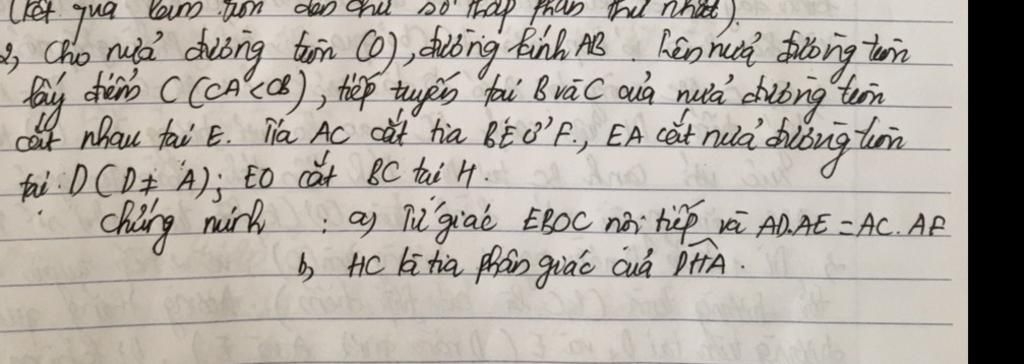 (kết quả làm tròn đến chữ số thập phân thứ nhất).
2, Cho nửa đường tròn (O), đường kính AB. Trên nửa đường tròn
lấy điểm C (CA < CB), tiếp tuyến tại B và C của nửa đường tròn
cắt nhau tại E. Tia AC cắt tia BE ở F., EA cắt nửa đường tròn
tại D (D ≠ A); EO cắt BC tại H.
Chứng minh : a) Tứ giác EBOC nội tiếp và AD.AE = AC.AF
b, HC là tia phân giác của DHA.